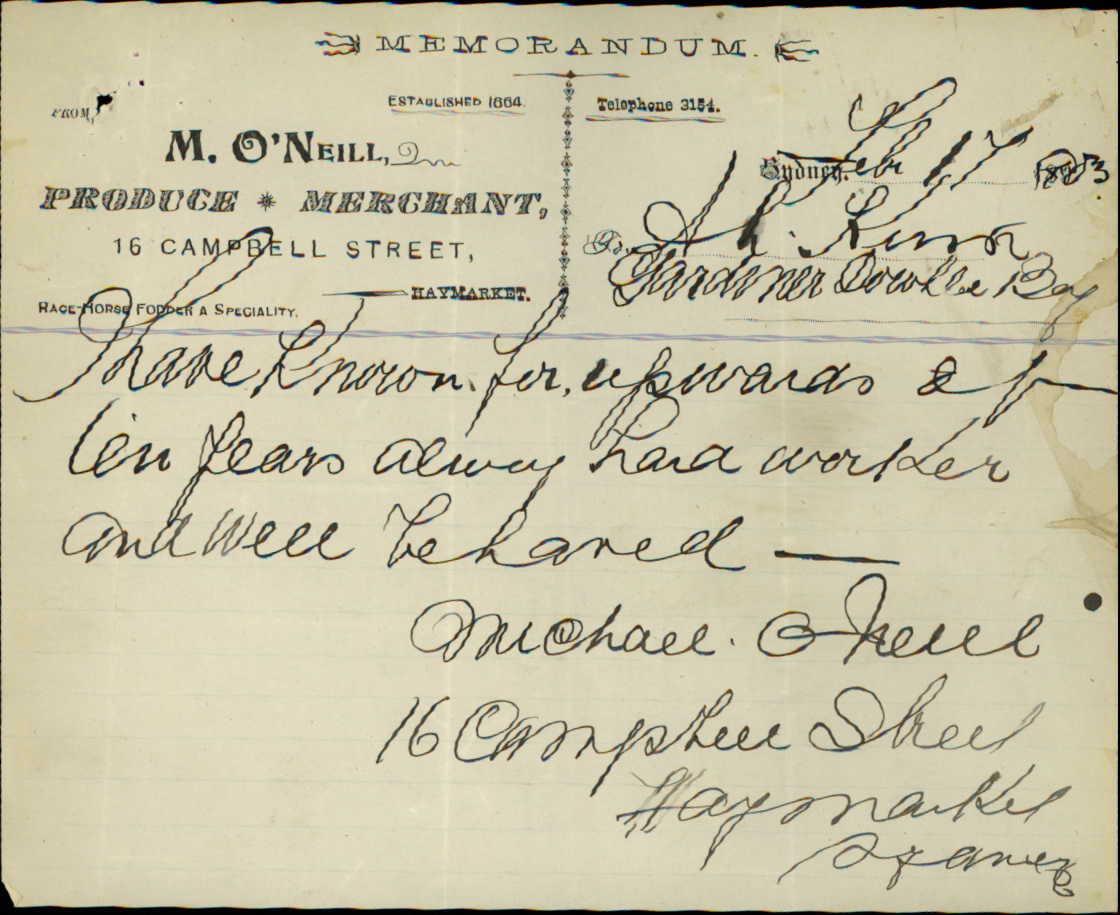 MEMORANDUM.
FROM,
ESTABLISHED 1864.
Telephone 3154.
M. O'NEILL,
PRODUCE * MERCHANT,
16 CAMPBELL STREET,
HAYMARKET.
RACE-HORSE FODDER A SPECIALITY.
Sydney, Feb 17 1903
To Ah Kinn
Gardiner Double Bay
I have Known for upwards of
ten years alway hard worker
and well behaved —
Michael O'Neill
16 Campbell Street
Haymarket
Sydney